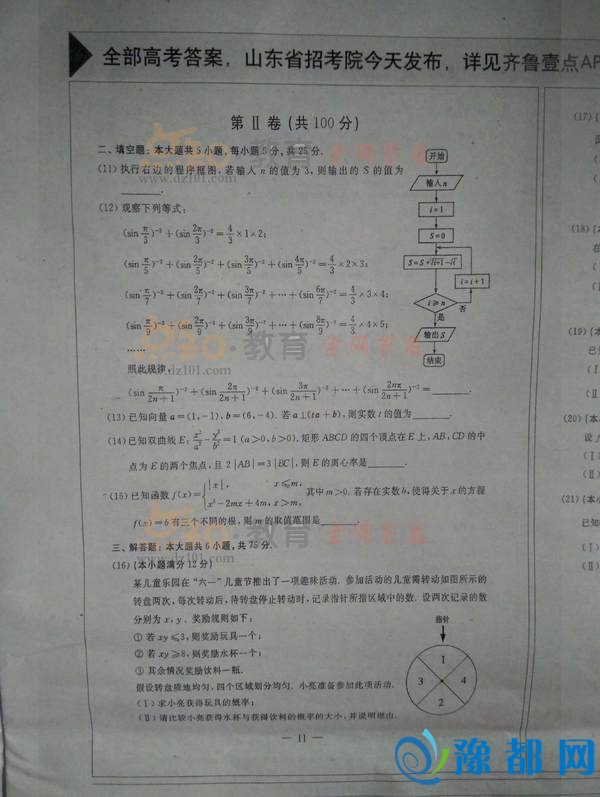 全部高考答案，山东省招考院今天发布，详见齐鲁壹点AP
第Ⅱ卷(共100分)
二、填空题：本大题共5小题,每小题5分,共25分.
(11)执行右边的程序框图,若输入n的值为3,则输出的S的值为
______.
开始
输入n
i=1
S=0
S=S+√(i+1)-√i
i=i+1
i≥n
否
是
输出S
结束
(12)观察下列等式:
(sin π/3)⁻²+(sin 2π/3)⁻²=4/3×1×2;
(sin π/5)⁻²+(sin 2π/5)⁻²+(sin 3π/5)⁻²+(sin 4π/5)⁻²=4/3×2×3;
(sin π/7)⁻²+(sin 2π/7)⁻²+(sin 3π/7)⁻²+⋯+(sin 6π/7)⁻²=4/3×3×4;
(sin π/9)⁻²+(sin 2π/9)⁻²+(sin 3π/9)⁻²+⋯+(sin 8π/9)⁻²=4/3×4×5;
……
照此规律,
(sin π/(2n+1))⁻²+(sin 2π/(2n+1))⁻²+(sin 3π/(2n+1))⁻²+⋯+(sin 2nπ/(2n+1))⁻²=______.
(13)已知向量a=(1,-1),b=(6,-4).若a⊥(ta+b),则实数t的值为______.
(14)已知双曲线E:x²/a²-y²/b²=1(a>0,b>0).矩形ABCD的四个顶点在E上,AB,CD的中
点为E的两个焦点,且2|AB|=3|BC|,则E的离心率是______.
(15)已知函数f(x)={|x|, x≤m, x²-2mx+4m, x>m, 其中m>0.若存在实数b,使得关于x的方程
f(x)=b有三个不同的根,则m的取值范围是______.
三、解答题：本大题共6小题,共75分.
(16)(本小题满分12分)
某儿童乐园在“六一”儿童节推出了一项趣味活动.参加活动的儿童需转动如图所示的
转盘两次,每次转动后,待转盘停止转动时,记录指针所指区域中的数.设两次记录的数
分别为x,y.奖励规则如下:
①若xy≤3,则奖励玩具一个;
②若xy≥8,则奖励水杯一个;
③其余情况奖励饮料一瓶.
假设转盘质地均匀,四个区域划分均匀.小亮准备参加此项活动.
(Ⅰ)求小亮获得玩具的概率;
(Ⅱ)请比较小亮获得水杯与获得饮料的概率的大小,并说明理由.
指针
1
3
4
2
— 11 —
(17)(
(18)(本
在
(Ⅰ
(Ⅱ
(19)(本
已
(Ⅰ
(Ⅱ
(20)(本
设f
(Ⅰ
(Ⅱ
(21)(本
已知
(Ⅰ)
(Ⅱ)
教育
www.dz101.com
教育
www.dz101.com
教育
www.dz101.com
豫都网